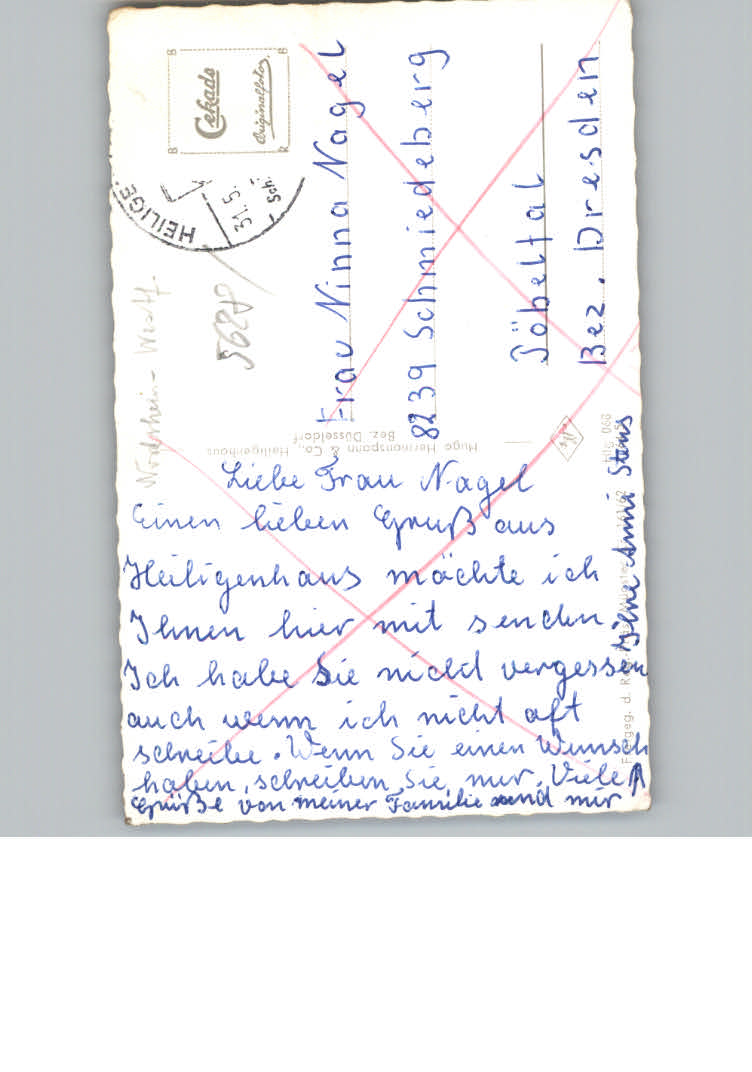 Cekade
Originalfoto
HEILIGE
31.5.
Sch.
5628
Nordrhein-Westf.
Frau Ninna Nagel
8239 Schmiedeberg
Pöbeltal
Bez. Dresden
Hugo Hermannspann & Co., Heiligenhaus
Bez. Düsseldorf
Liebe Frau Nagel
Einen lieben Gruß aus
Heiligenhaus möchte ich
Ihnen hier mit senden.
Ich habe Sie nicht vergessen
auch wenn ich nicht oft
schreibe. Wenn Sie einen Wunsch
haben, schreiben Sie mir. Viele
Grüße von meiner Familie und mir
Ihre Anni Stens